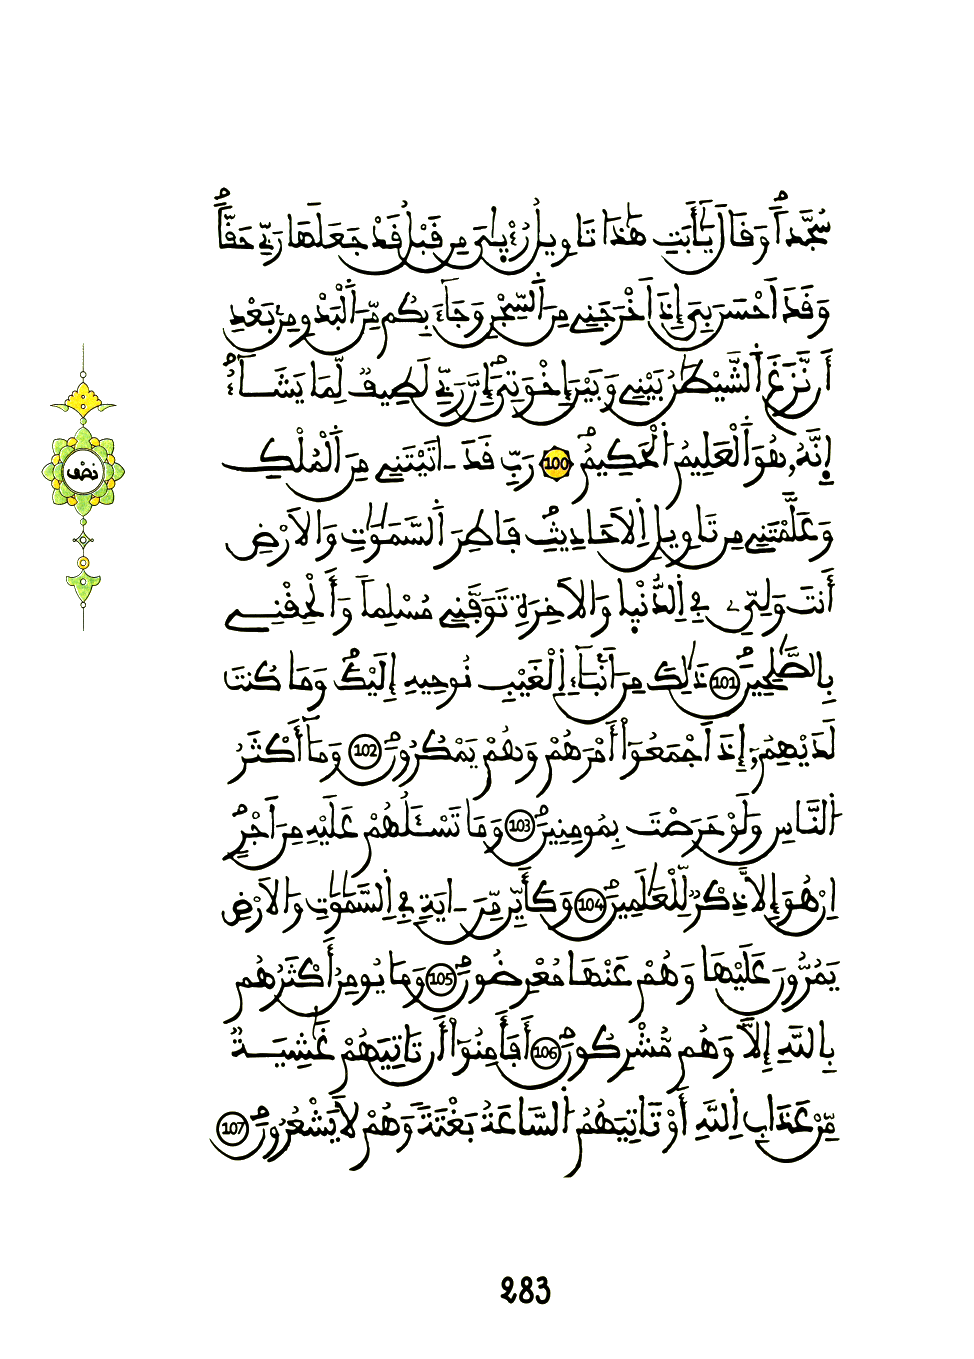 سُجَّداًۖ وَقَالَ يَٰٓأَبَتِ هَٰذَا تَاوِيلُ رُءْيَٰيَ مِن قَبْلُ قَدْ جَعَلَهَا رَبِّے حَقّاًۖ
وَقَدَ اَحْسَنَ بِيَ إِذَ اَخْرَجَنِے مِنَ اَ۬لسِّجْنِ وَجَآءَ بِكُم مِّنَ اَ۬لْبَدْوِ مِنۢ بَعْدِ
أَن نَّزَغَ اَ۬لشَّيْطَٰنُ بَيْنِے وَبَيْنَ إِخْوَتِيَۖ إِنَّ رَبِّے لَطِيفٞ لِّمَا يَشَآءُۖ
اِنَّهُۥ هُوَ اَ۬لْعَلِيمُ اُ۬لْحَكِيمُۖ 100 رَبِّ قَدَ اٰتَيْتَنِے مِنَ اَ۬لْمُلْكِ
وَعَلَّمْتَنِے مِن تَاوِيلِ اِ۬لَاحَادِيثِۖ فَاطِرَ اَ۬لسَّمَٰوَٰتِ وَالَارْضِ
أَنتَ وَلِيِّۦ فِے اِ۬لدُّنْيٰا وَالَاخِرَةِۖ تَوَفَّنِے مُسْلِماً وَأَلْحِقْنِے
بِالصَّٰلِحِينَۖ 101 ذَٰلِكَ مِنَ اَنۢبَآءِ اِ۬لْغَيْبِ نُوحِيهِ إِلَيْكَۖ وَمَا كُنتَ
لَدَيْهِمُۥٓ إِذَ اَجْمَعُوٓاْ أَمْرَهُمْ وَهُمْ يَمْكُرُونَۖ 102 وَمَآ أَكْثَرُ
اُ۬لنَّاسِ وَلَوْ حَرَصْتَ بِمُومِنِينَۖ 103 وَمَا تَسْـَٔلُهُمْ عَلَيْهِ مِنَ اَجْرٍۖ
اِنْ هُوَ إِلَّا ذِكْرٞ لِّلْعَٰلَمِينَۖ 104 وَكَأَيِّن مِّنَ اٰيَةٖ فِے اِ۬لسَّمَٰوَٰتِ وَالَارْضِ
يَمُرُّونَ عَلَيْهَا وَهُمْ عَنْهَا مُعْرِضُونَۖ 105 وَمَا يُومِنُ أَكْثَرُهُم
بِاللَّهِ إِلَّا وَهُم مُّشْرِكُونَۖ 106 أَفَأَمِنُوٓاْ أَن تَاتِيَهُمْ غَٰشِيَةٞ
مِّنْ عَذَابِ اِ۬للَّهِ أَوْ تَاتِيَهُمُ اُ۬لسَّاعَةُ بَغْتَةٗ وَهُمْ لَا يَشْعُرُونَۖ 107
نصف
283